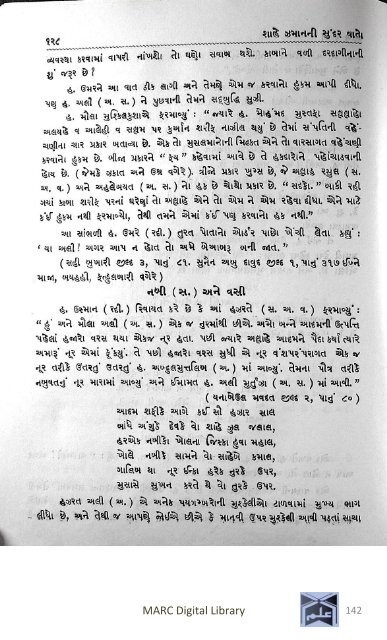 ૧૨૮ શાહે ઝમાનની સુંદર વાતો
વ્યવસ્થા કરવામાં વાપરી નાંખશો તો ઘણો સવાબ થશે. કાબાને વળી દરદાગીનાની
શું જરૂર છે ?
હ. ઉમરને આ વાત ઠીક લાગી અને તેમણે એમ જ કરવાનો હુકમ આપી દીધો.
પણ હ. અલી (અ. સ.) ને પુછવાની તેમને સદ્બુદ્ધિ સુઝી.
હ. મૌલા મુશ્કિલકુશાએ ફરમાવ્યું : " જ્યારે હ. મોહંમદ મુસ્તફા સલ્લલ્લાહો
અલયહે વ આલેહી વ સલ્લમ પર કુર્આન શરીફ નાઝીલ થયું છે તેમાં સંપતિની વહેં-
ચણીના ચાર પ્રકાર બતાવ્યા છે. એક તો મુસલમાનોની મિલ્કત એને તો વારસાગત વહેંચણી
કરવાનો હુકમ છે. બીજા પ્રકારને " ફય " કહેવામાં આવે છે તે હકદારોને પહોંચાડવાની
હોય છે. (જેમકે ઝકાત અને ઉશ્ર વગેરે). ત્રીજો પ્રકાર ખુમ્સ છે, જે અલ્લાહ રસુલ (સ.
અ. વ.) અને અહલેબયત (અ. સ.) નો હક છે ચોથો પ્રકાર છે. " સદકો. " બાકી રહી
ગયાં કાબા શરીફ પરનાં ઘરેણાં તો અલ્લાહે એને તો એમ ને એમ રહેવા દીધા. એને માટે
કંઈ હુકમ નથી ફરમાવ્યો, તેથી તમને એમાં કંઈ પણ કરવાનો હક નથી."
આ સાંભળી હ. ઉમરે (રદી.) તુરત પોતાનો ઓર્ડર પાછો ખેંચી લીતો કહ્યું :
' યા અલી ! અગર આપ ન હોત તો અમે બેઆબરૂ બની જાત. "
(સહી બુખારી જીલ્દ ૩, પાનું ૮૧. સુનેન અબુ દાવુદ જીલ્દ ૧, પાનું ૩૧૭ ઈબ્ને
માજા, બયહકી, ફત્હુલબારી વગેરે)
નબી (સ.) અને વસી
હ. ઉસ્માન (રદી.) રિવાયત કરે છે કે આં હઝરતે (સ. અ. વ.) ફરમાવ્યું :
" હું અને મૌલા અલી (અ. સ.) એક જ નુરમાંથી છીએ. અમો બન્ને આદમની ઉત્પત્તિ
પહેલાં હજારો વરસ થયા એક નૂર હતા. પછી જ્યારે અલ્લાહે આદમને પેદા કર્યા ત્યારે
અમારૂં નૂર એમાં ફૂંક્યું. તે પછી હજારો વરસ સુધી એ નૂર વંશપરંપરાગત એક જ
નૂર તરીકે ઉતરતું ઉતરતું હ. અબ્દુલમુત્તલિબ (અ.) માં આવ્યું. તેમના પૌત્ર તરીકે
નબુવતનું નૂર મારામાં આવ્યું અને ઈમામત હ. અલી મુર્તુઝા (અ. સ.) માં આવી."
(યનાબેઉલ મવદત જીલ્દ ૨, પાનું ૮૦)
આદમ શરીકે આગે કઈ સૌ હઝાર સાલ
બાંધે અંગુઠે દેવકે વો શાહે ઝુલ જલાલ,
હરએક નબીકો ખોલના જિસ્કા હુવા મહાલ,
ખોલે નબીકે સામને વો સાહેબે કમાલ,
ગાલિબ થા નૂર ઈન્કા હરેક નુરકે ઉપર,
મુસાસે સુખન કરતે થે વો તુરકે ઉપર.
હઝરત અલી (અ.) એ અનેક પયગમ્બરોની મુશ્કેલીઓ ટાળવામાં મુખ્ય ભાગ
લીધો છે, અને તેથી જ આપણે જોઈએ છીએ કે માનવી ઉપર મુશ્કેલી આવી પડતાં સાચા
MARC Digital Library 142